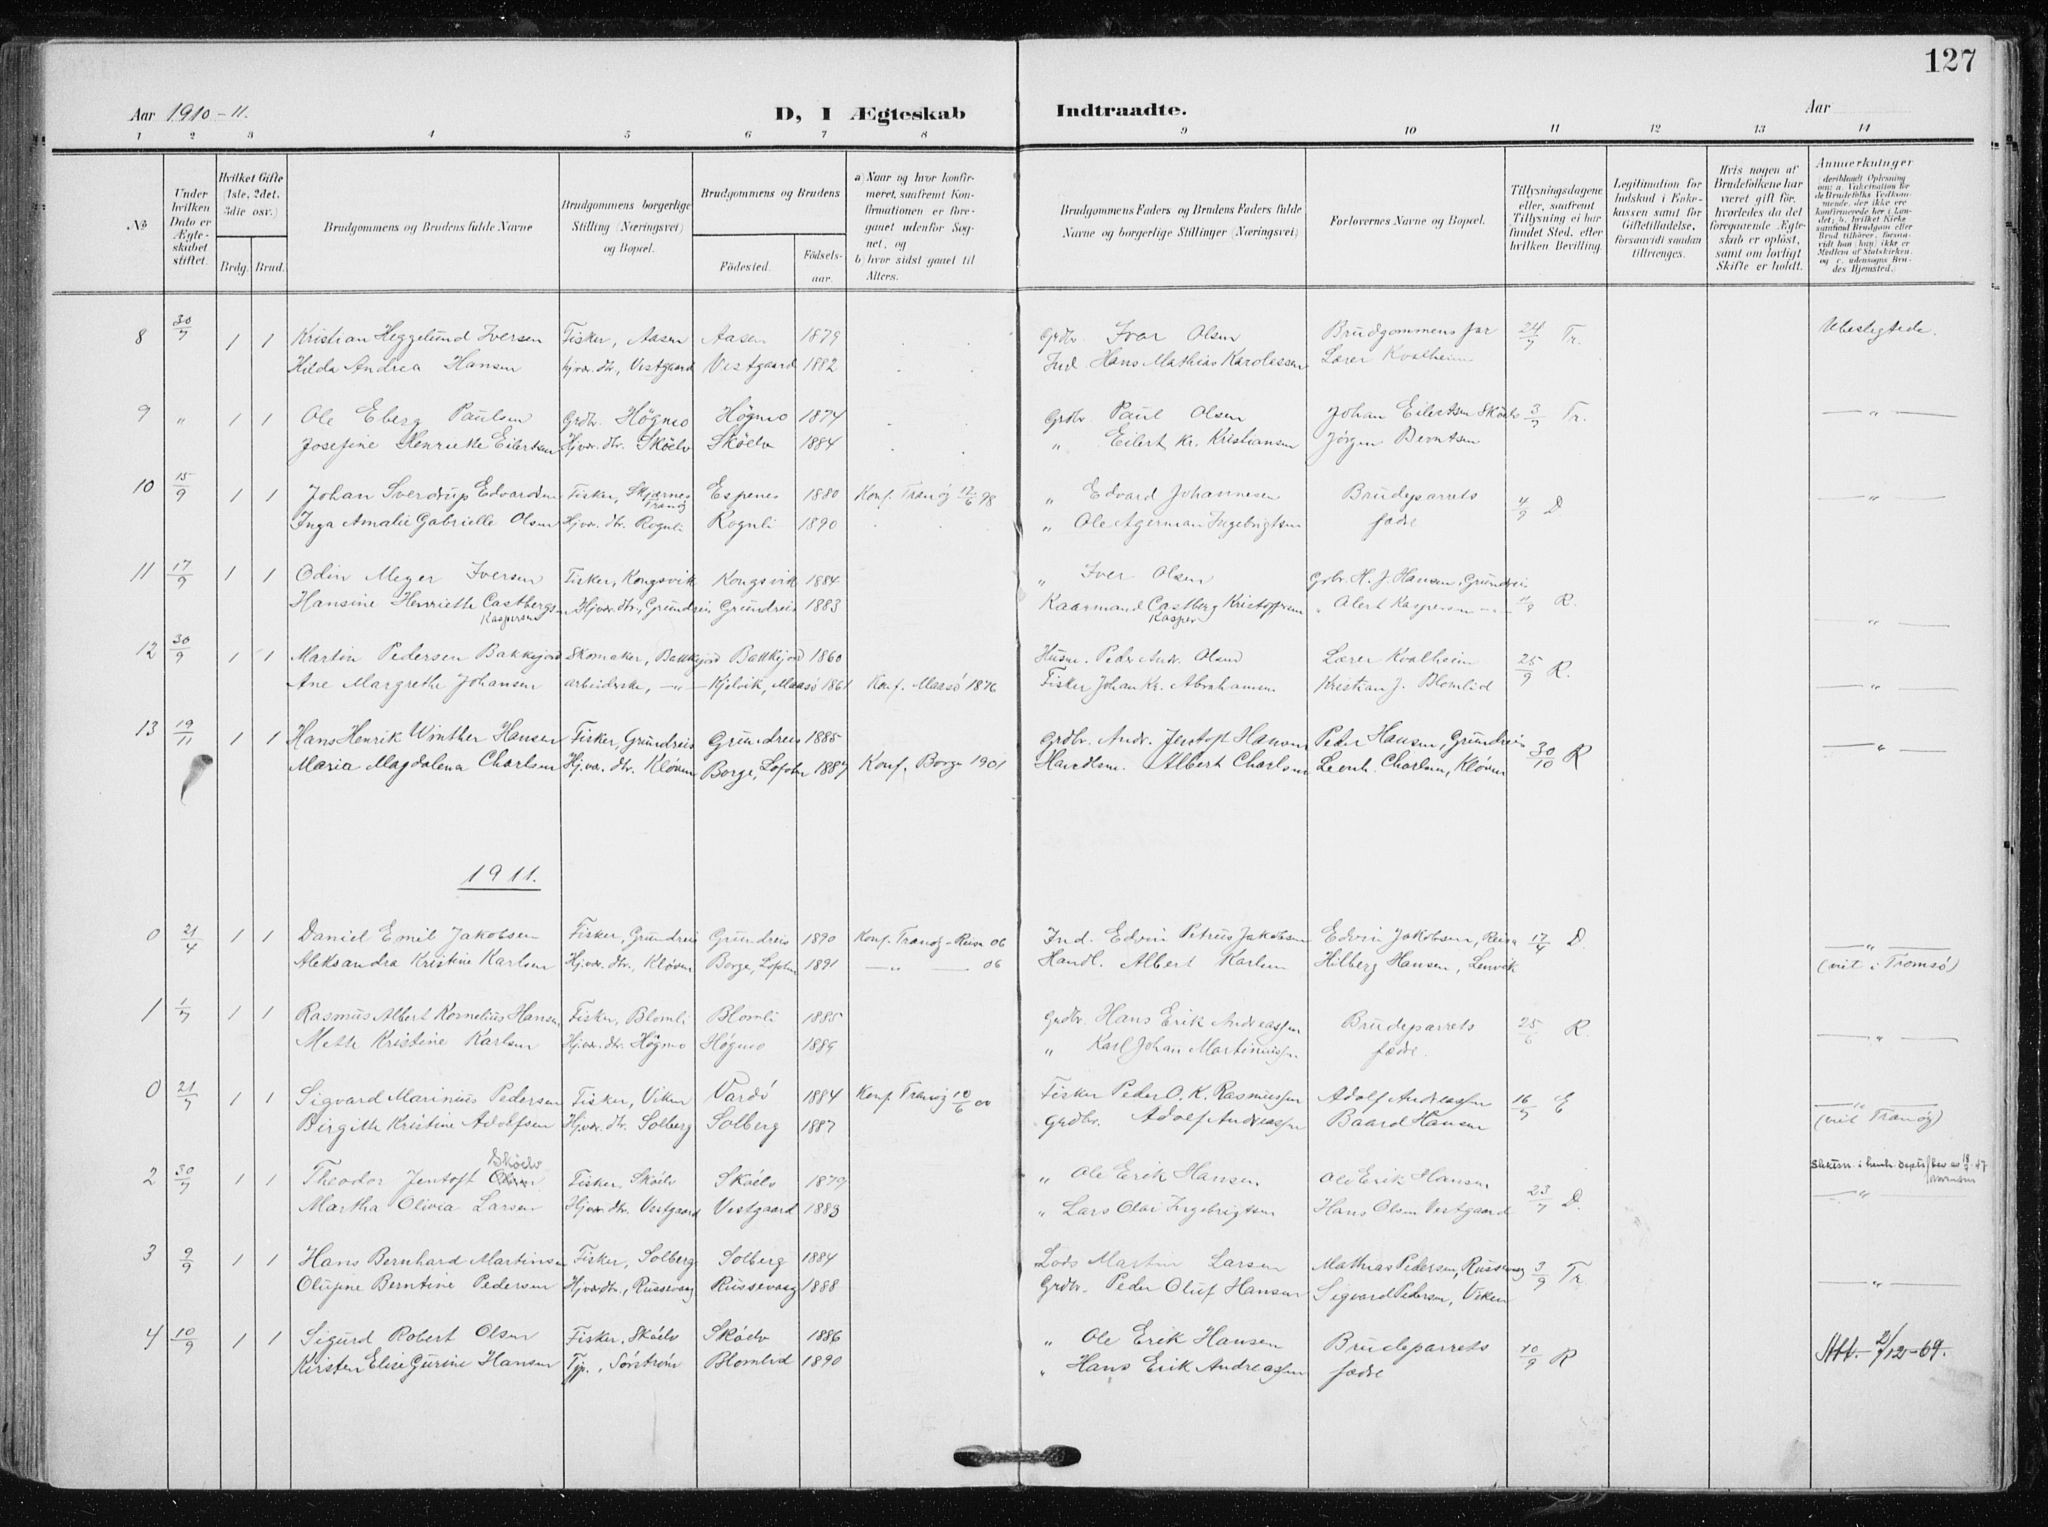 127
Aar 1910-11.
D, I Ægteskab Indtraadte.
Aar
1 2 3 4 5 6 7 8 9 10 11 12 13 14
No
Under hvilken Dato er Ægteskabet stiftet.
Hvilket Gifte (1ste, 2det, 3die osv.)
Brdg. Brud.
Brudgommens og Brudens fulde Navne
Brudgommens borgerlige Stilling (Næringsvei) og Bopæl.
Brudgommens og Brudens
Födested.
Födselsaar.
a) Naar og hvor konfirmeret, saafremt Konfirmationen er foregaaet udenfor Sognet, og
b) hvor sidst gaaet til Alters.
Brudgommens Faders og Brudens Faders fulde Navne og borgerlige Stillinger (Næringsvei)
Forlovernes Navne og Bopæl.
Tillysningsdagene eller, saafremt Tillysning ei har fundet Sted, efter hvilken Bevilling.
Legitimation for Indskud i Enkekassen samt for Giftetilladelse, forsaavidt saadan tiltrænges.
Hvis nogen af Brudefolkene har været gift för, hvorledes da det foregaaende Ægteskab er oplöst, samt om lovligt Skifte er holdt.
Anmærkninger
8 30/7 1 1 Kristian Heggelund Iversen Fisker, Aasen Aasen 1879 Grdbr. Ivar Olsen Brudgommens far 24/7 Tr. Ubeslegtede.
Hilda Andrea Hansen Hjvær. dtr., Vestgaard Vestgaard 1882 Ind. Hans Mathias Karolessen Lærer Kvalheim
9 " 1 1 Ole Eberg Paulsen Grdbr. Högmo Högmo 1874 Grdbr Paul Olsen Johan Eilertsen Sköelv 3/7 Tr. — " —
Josefine Henrikke Eilertsen Hjvær. dtr. Sköelv Sköelv 1884 " Eilert Kr. Kristiansen Jørgen Berntsen
10 15/9 1 1 Johan Sverdrup Edvardsen Fisker, Skjærnes Tranöy Espenes 1880 Konf. Tranöy 12/6 98 " Edvard Johannesen Brudeparrets 4/9 D — " —
Inga Amalie Gabrielle Olsen Hjvær. dtr. Rognli Rognli 1890 " Ole Agerman Ingebrigtsen fædre
11 17/9 1 1 Odin Meyer Iversen Fisker, Kongsvik Kongsvik 1884 " Iver Olsen Grbr. H. J. Hansen, Grundreis
Hansine Henriette Castbergsen Kaspersen Hjvær. dtr., Grundreis Grundreis 1883 Kaarmand Castberg Kasper Kristoffersen " Alert Kaspersen — " — 11/9 R. — " —
12 30/9 1 1 Martin Pedersen Bakkejord Skomaker, Bakkejord Bakkejord 1860 Husm. Peder Andr. Olsen Lærer Kvalheim 25/9 R.
Ane Margrethe Johansen arbeiderske, — " — Kjelvik, Maasö 1861 Konf. Maasö 1876 Fisker Johan Kr. Abrahamsen Kristian J. Blomlid — " —
13 19/11 1 1 Hans Henrik Winther Hansen Fisker, Grundreis Grundreis 1885 Grdbr. Andr. Jentoft Hansen Peder Hansen, Grundreis 30/10 R — " —
Maria Magdalena Charlsen Hjvær. dtr. Kløven Borge, Lofoten 1887 Konf. Borge 1901 Handlsm. Albert Charlsen Leonh. Charlsen, Kløven
1911.
0 21/4 1 1 Daniel Emil Jakobsen Fisker, Grundreis Grundreis 1890 Konf. Tranöy-Reisa 06 Ind. Edvin Petrus Jakobsen Edvin Jakobsen, Reisa 17/4 D. — " —
Aleksandra Kristine Karlsen Hjvær. dtr., Kløven Borge, Lofoten 1891 — " — 06 Handl. Albert Karlsen Hilberg Hansen, Lenvik (viet i Tromsö)
1 1/7 1 1 Rasmus Albert Kornelius Hansen Fisker, Blomli Blomli 1885 Grdbr. Hans Erik Andreassen Brudeparrets 25/6 R.
Mette Kristine Karlsen Hjvær. dtr. Högmo Högmo 1889 " Karl Johan Martinussen fædre. — " —
0 21/7 1 1 Sigvard Marinius Pedersen Fisker, Viken Vardö 1884 Konf. Tranöy 10/6 00 Fisker Peder O. K. Rasmussen Adolf Andreassen 16/7 E — " —
Birgitte Kristine Adolfsen Hjvær. dtr. Solberg Solberg 1887 Grdbr. Adolf Andreassen Baard Hansen (viet Tranöy)
2 30/7 1 1 Theodor Jentoft Olsen Sköelv Fisker, Sköelv Sköelv 1879 " Ole Erik Hansen Ole Erik Hansen 23/7 D. — " —
Martha Olivia Larsen Hjvær. dtr. Vestgaard Vestgaard 1883 " Lars Olai Ingebrigtsen Hans Olsen Vestgaard
3 9/9 1 1 Hans Bernhard Martinsen Fisker, Solberg Solberg 1884 Lods Martin Larsen Mathias Pedersen, Russevaag 3/9 Tr.
Olufine Berntine Pedersen Hjværdtr., Russevaag Russevaag 1888 Grdbr. Peder Oluf Hansen Sigvard Pedersen, Viken — " —
4 10/9 1 1 Sigurd Robert Olsen Fisker, Sköelv Sköelv 1886 " Ole Erik Hansen Brudeparrets 10/9 R Att. 2/12-69.
Kirsten Elise Gurine Hansen Tjp., Sørstrøm Blomlid 1890 " Hans Erik Andreassen fædre